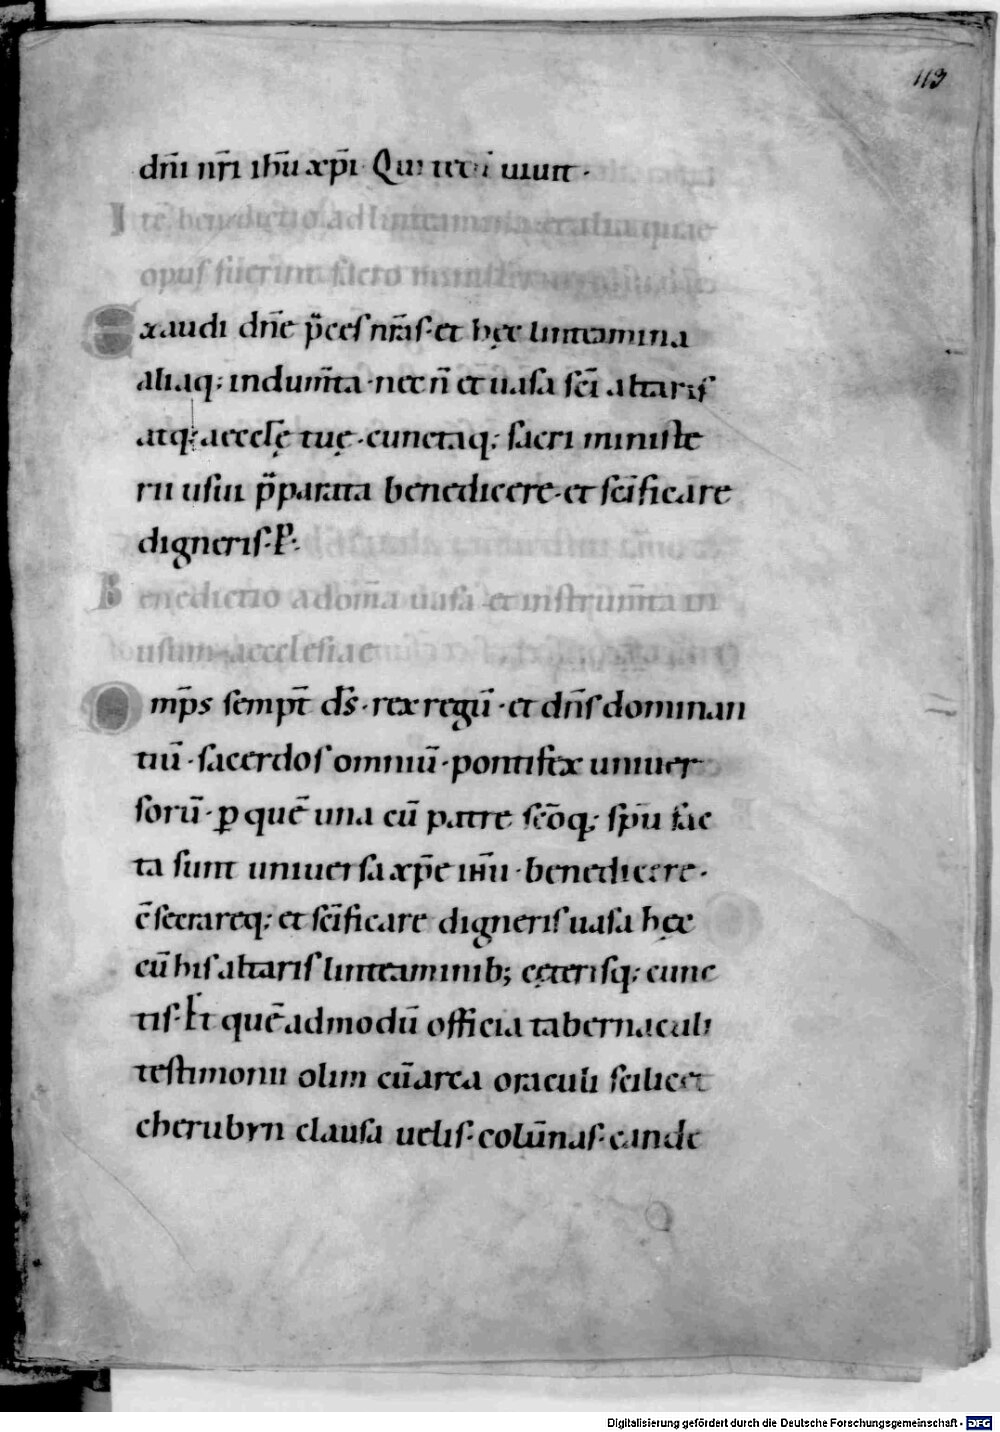 113
dn̄i nr̄i ihū xp̄i Qui uiuit·
Itē benedictio ad linteamina et alia quae
opus fuerint sacro
Exaudi dn̄e p̄ces nr̄as· et hęc linteamina
aliaq; indum̄ta· nec n̄ et uasa sc̄i altaris
atq; aeccl̄ę tuę· cunctaq; sacri ministe
rii usui p̄parata benedicere· et sc̄ificare
digneris· P̱·
Benedictio ad om̄a uasa et instrum̄ta in
usum aecclesiae
Omp̄s semp̄t d̄s· rex regū· et dn̄s dominan
tiū· sacerdos omniū· pontifex uniuer
sorū· ꝑ quē una cū patre sc̄oq; sp̄u fac
ta sunt uniuersa xp̄e ihū· benedicere·
c̄secrareq; et sc̄ificare digneris uasa hęc
cū his altaris linteaminib; cęterisq; cunc
tis· Et quēadmodū officia tabernaculi
testimonii olim cū arca oraculi scilicet
cherubyn clausa uelis· colūnas· cande
Digitalisierung gefördert durch die Deutsche Forschungsgemeinschaft - DFG